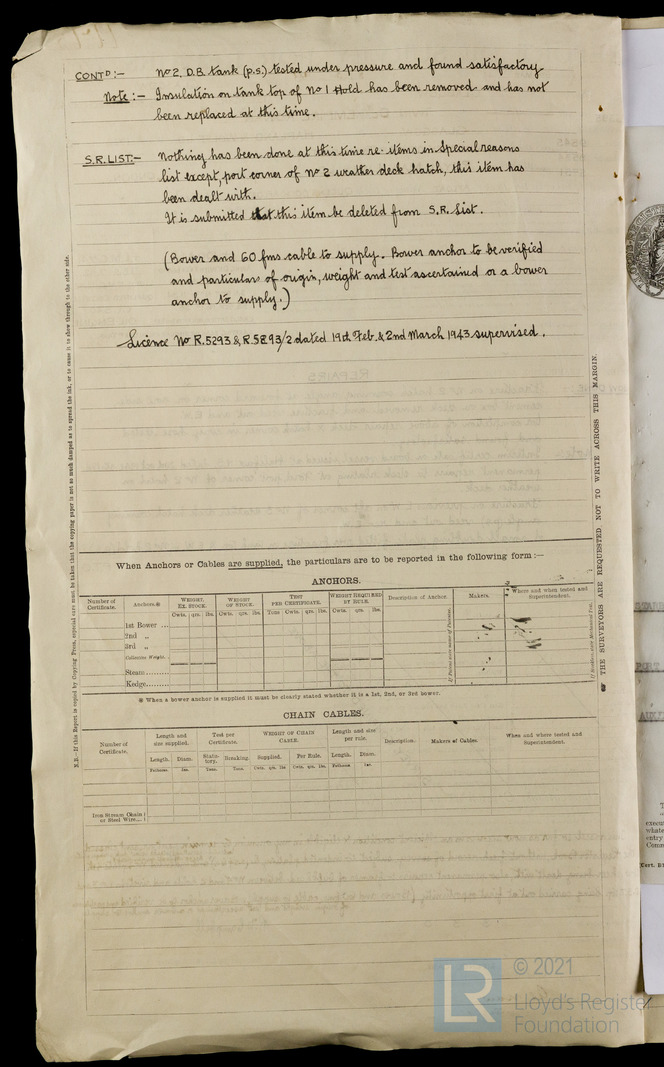 CONTD:- No 2. D.B. tank (p.s.) tested under pressure and found satisfactory
Note:- Insulation on tank top of No 1 Hold has been removed and has not
been replaced at this time.
S.R. LIST:- Nothing has been done at this time re- items in Special reasons
list except, port corner of No 2 weather deck hatch, this item has
been dealt with.
It is submitted that this item be deleted from S.R. List.
(Bower and 60 fms cable to supply. Bower anchor to be verified
and particulars of origin, weight and test ascertained or a bower
anchor to supply.)
Licence No R.5293 & R.5293/2 dated 19th Feb. & 2nd March 1943 supervised.
N.B.—If this Report is copied by Copying Press, especial care must be taken that the copying paper is not so much damped as to spread the ink, or to cause it to show through to the other side.
THE SURVEYORS ARE REQUESTED NOT TO WRITE ACROSS THIS MARGIN.
When Anchors or Cables are supplied, the particulars are to be reported in the following form :—
ANCHORS.
Number of Certificate. Anchors.※ WEIGHT. EX. STOCK. WEIGHT OF STOCK. TEST PER CERTIFICATE. WEIGHT REQUIRED BY RULE. Description of Anchor. Makers. Where and when tested and Superintendent.
Cwts. qrs. lbs. Cwts. qrs. lbs. Tons Cwts. qrs. lbs. Cwts. qrs. lbs.
1st Bower ...
2nd „
3rd „
Collective Weight.
Stream........
Kedge.........
※ When a bower anchor is supplied it must be clearly stated whether it is a 1st, 2nd, or 3rd bower.
CHAIN CABLES.
Number of Certificate. Length and size supplied. Test per Certificate. WEIGHT OF CHAIN CABLE. Length and size per rule. Description. Makers of Cables. When and where tested and Superintendent.
Length. Diam. Statutory. Breaking. Supplied. Per Rule. Length. Diam.
Fathoms. Ins. Tons. Tons. Cwts. qrs. lbs. Cwts. qrs. lbs. Fathoms Ins.
Iron Stream Chain
or Steel Wire...
LR © 2021
Lloyd's Register
Foundation